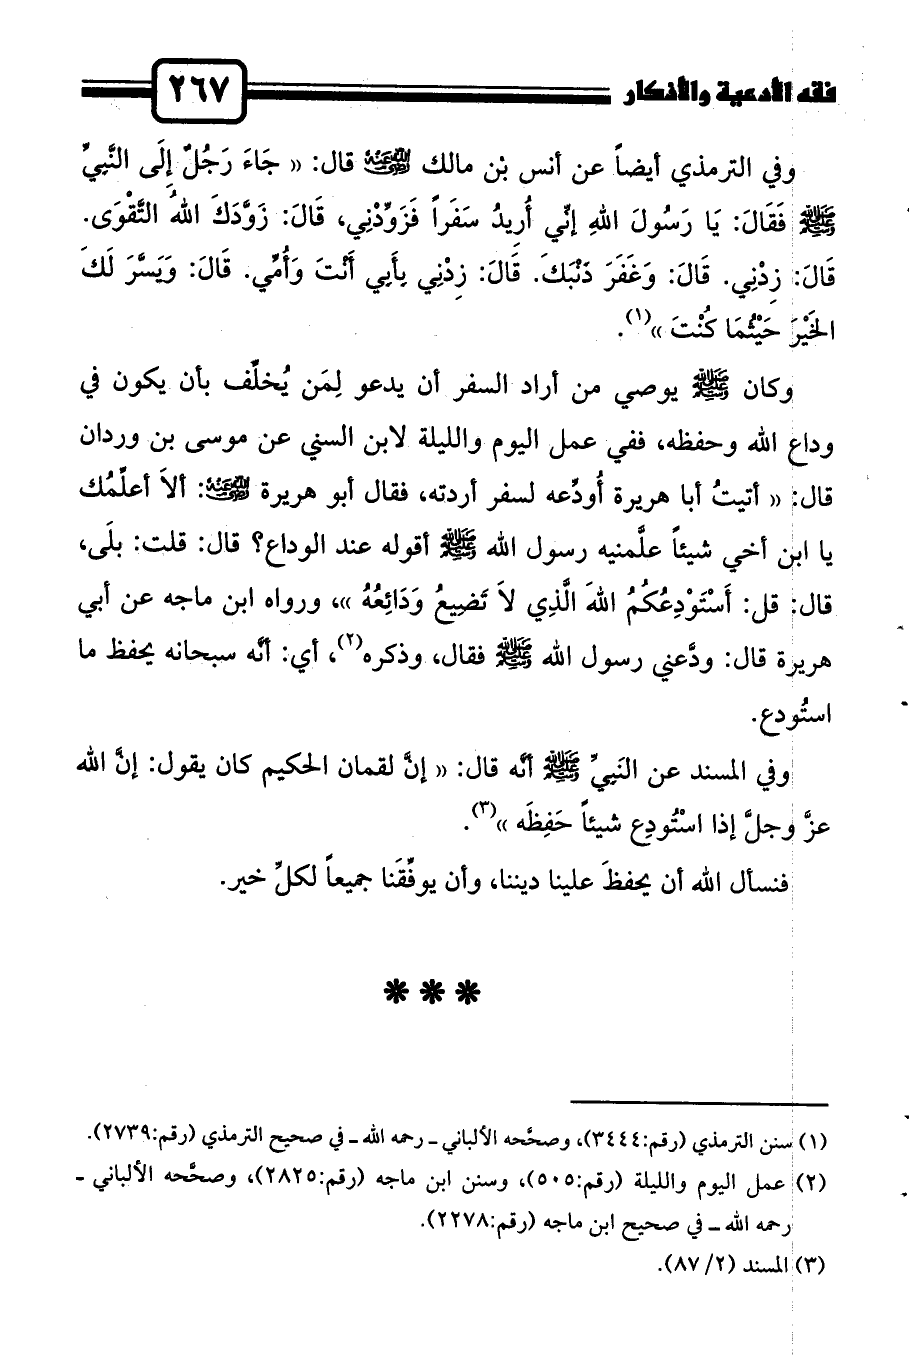 فقه الأدعية والأذكار ٢٦٧
وفي الترمذي أيضاً عن أنس بن مالك رضي الله عنه قال: « جَاءَ رَجُلٌ إِلَى النَّبِيِّ
ﷺ فَقَالَ: يَا رَسُولَ اللهِ إِنِّي أُرِيدُ سَفَرَاً فَزَوِّدْنِي، قَالَ: زَوَّدَكَ اللهُ التَّقْوَى.
قَالَ: زِدْنِي. قَالَ: وَغَفَرَ ذَنْبَكَ. قَالَ: زِدْنِي بِأَبِي أَنْتَ وَأُمِّي. قَالَ: وَيَسَّرَ لَكَ
الخَيْرَ حَيْثُمَا كُنْتَ »(١).
وكان ﷺ يوصي من أراد السفر أن يدعو لِمَن يُخلِّف بأن يكون في
وداع الله وحفظه، ففي عمل اليوم والليلة لابن السني عن موسى بن وردان
قال: « أتيتُ أبا هريرة أُودِّعه لسفر أردته، فقال أبو هريرة رضي الله عنه: ألاَ أعلِّمُك
يا ابن أخي شيئاً علَّمنيه رسول الله ﷺ أقوله عند الوداع؟ قال: قلت: بلَى،
قال: قل: أَسْتَوْدِعُكُمُ اللهَ الَّذِي لاَ تَضِيعُ وَدَائِعُهُ »، ورواه ابن ماجه عن أبي
هريرة قال: ودَّعني رسول الله ﷺ فقال، وذكره(٢)، أي: أنَّه سبحانه يحفظ ما
استُودع.
وفي المسند عن النَبيِّ ﷺ أنَّه قال: « إنَّ لقمان الحكيم كان يقول: إنَّ الله
عزَّ وجلَّ إذا اسْتُودِع شيئاً حَفِظَه »(٣).
فنسأل الله أن يحفظَ علينا ديننا، وأن يوفِّقَنا جميعاً لكلِّ خير.
* * *
(١) سنن الترمذي (رقم:٣٤٤٤)، وصحَّحه الألباني ـ رحمه الله ـ في صحيح الترمذي (رقم:٢٧٣٩).
(٢) عمل اليوم والليلة (رقم:٥٠٥)، وسنن ابن ماجه (رقم:٢٨٢٥)، وصحَّحه الألباني ـ
رحمه الله ـ في صحيح ابن ماجه (رقم:٢٢٧٨).
(٣) المسند (٢/ ٨٧).